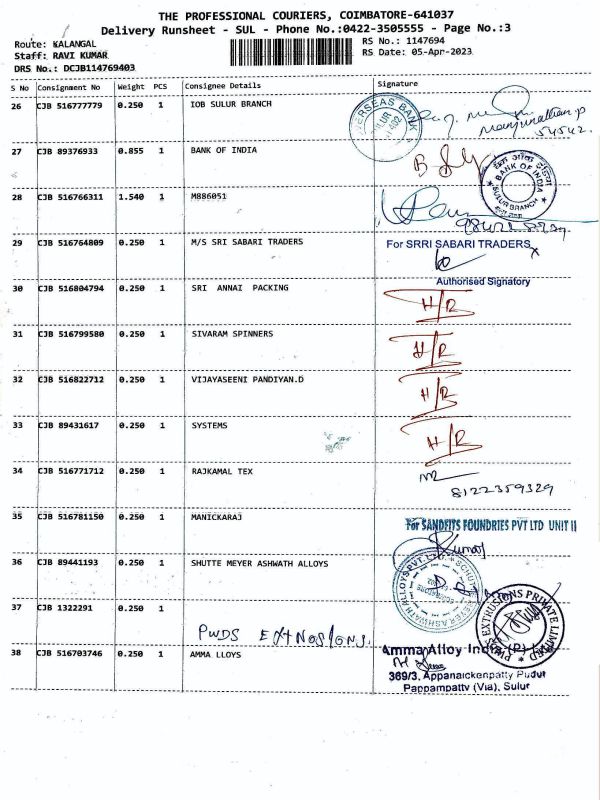 THE PROFESSIONAL COURIERS, COIMBATORE-641037
Delivery Runsheet - SUL - Phone No.:0422-3505555 - Page No.:3
Route: KALANGAL RS No.: 1147694
Staff: RAVI KUMAR RS Date: 05-Apr-2023
DRS No.: DCJB114769403
S No Consignment No Weight PCS Consignee Details Signature
26 CJB 516777779 0.250 1 IOB SULUR BRANCH
OVERSEAS BANK
54542.
27 CJB 89376933 0.855 1 BANK OF INDIA
BANK OF INDIA
SULUR BRANCH
28 CJB 516766311 1.540 1 M886051
29 CJB 516764809 0.250 1 M/S SRI SABARI TRADERS For SRRI SABARI TRADERS
Authorised Signatory
30 CJB 516804794 0.250 1 SRI ANNAI PACKING H/R
31 CJB 516799580 0.250 1 SIVARAM SPINNERS H/R
32 CJB 516822712 0.250 1 VIJAYASEENI PANDIYAN.D H/R
33 CJB 89431617 0.250 1 SYSTEMS H/R
34 CJB 516771712 0.250 1 RAJKAMAL TEX
8122359329
35 CJB 516781150 0.250 1 MANICKARAJ For SANDFITS FOUNDRIES PVT LTD UNIT II
Kumar
36 CJB 89441193 0.250 1 SHUTTE MEYER ASHWATH ALLOYS
SCHUTTE MEYER ASHWATH ALLOYS PVT. LTD.
37 CJB 1322291 0.250 1
PWDS EXTNOSIONS.
PWDS EXTRUSIONS PRIVATE LIMITED
38 CJB 516703746 0.250 1 AMMA LLOYS Amma Alloy India (P) Ltd
369/3, Appanaickenpatty Pudur
Pappampatty (Via), Sulur